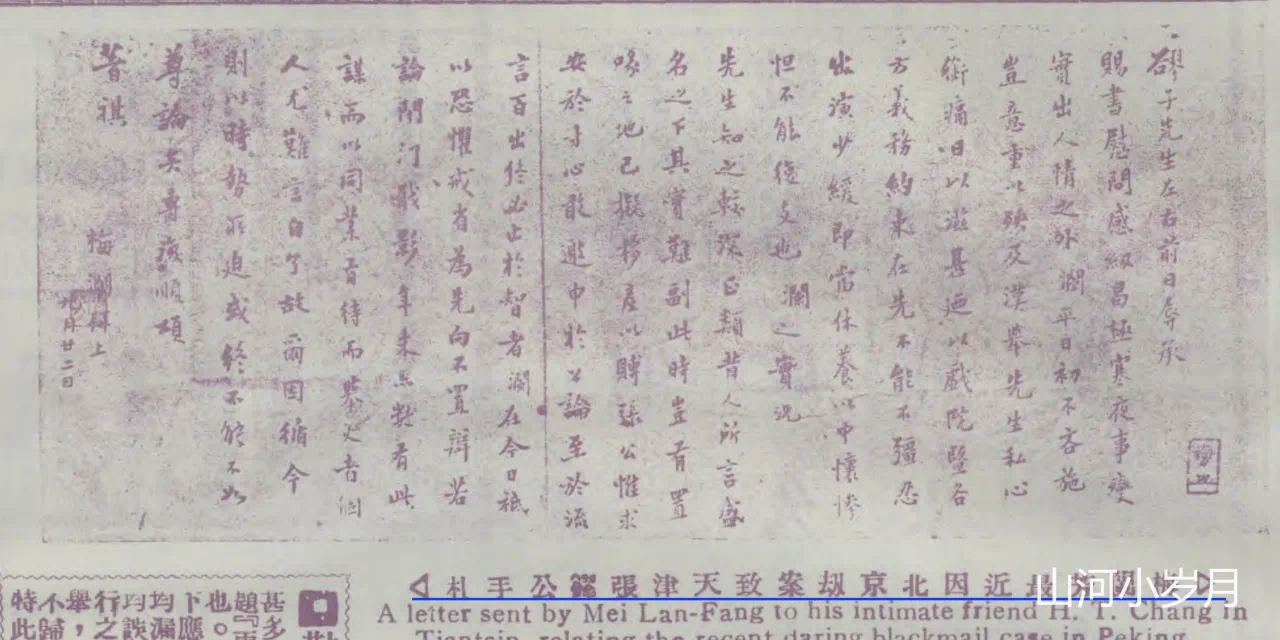 豂子先生左右前日辱承
賜書慰問感紉曷極寒夜事變
實出人情之外瀾平日初不吝施
豈意重以殃及漢舉先生私心
銜痛日以滋甚迺以戲院暨各
方義務約束在先不能不彊忍
出演少緩即當休養以中懷慘
怛不能復支也瀾之實況
先生知之較深正類昔人所言盛
名之下其實難副此時豈有置
喙之地已擬移產以賻張公惟求
安於寸心敢邀中於公論至於流
言百出終必止於智者瀾在今日祗
以恐懼戒省為先向不置辯若
論閉門戢影年來亦數有此
謀而以同業有待而舉火者
人尤難言自了故爾因循今
則以時勢所迫或終不能不如
尊論矣專復順頌
著祺
梅瀾拜上
月廿二日
最近因北京劫案致天津張豂公手札
A letter sent by Mei Lan-Fang to his intimate friend H. T. Chang in
Tientsin, relating the recent daring blackmail case in Peking
甚多
題『再
也。
下應
均漏
均談
行之
舉，
不歸
特此
山河小岁月